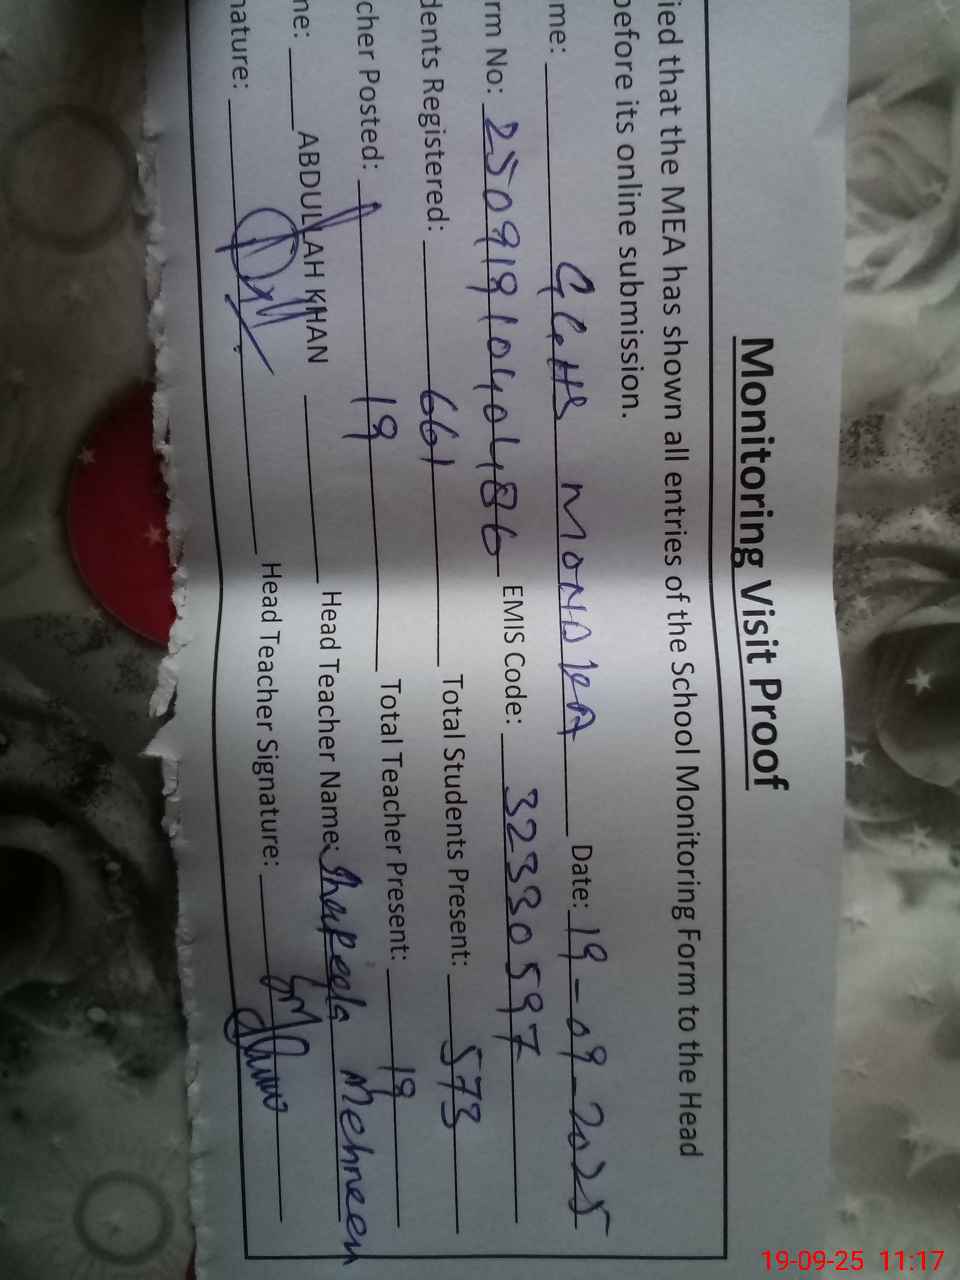 Monitoring Visit Proof
ied that the MEA has shown all entries of the School Monitoring Form to the Head
before its online submission.
me: GGHS MONDKA Date: 19-09-2025
rm No: 25091910404486 EMIS Code: 32330597
dents Registered: 661 Total Students Present: 573
cher Posted: 19 Total Teacher Present: 19
me: ABDULLAH KHAN Head Teacher Name: Shakeela Mehreen
nature: Head Teacher Signature:
19-09-25 11:17